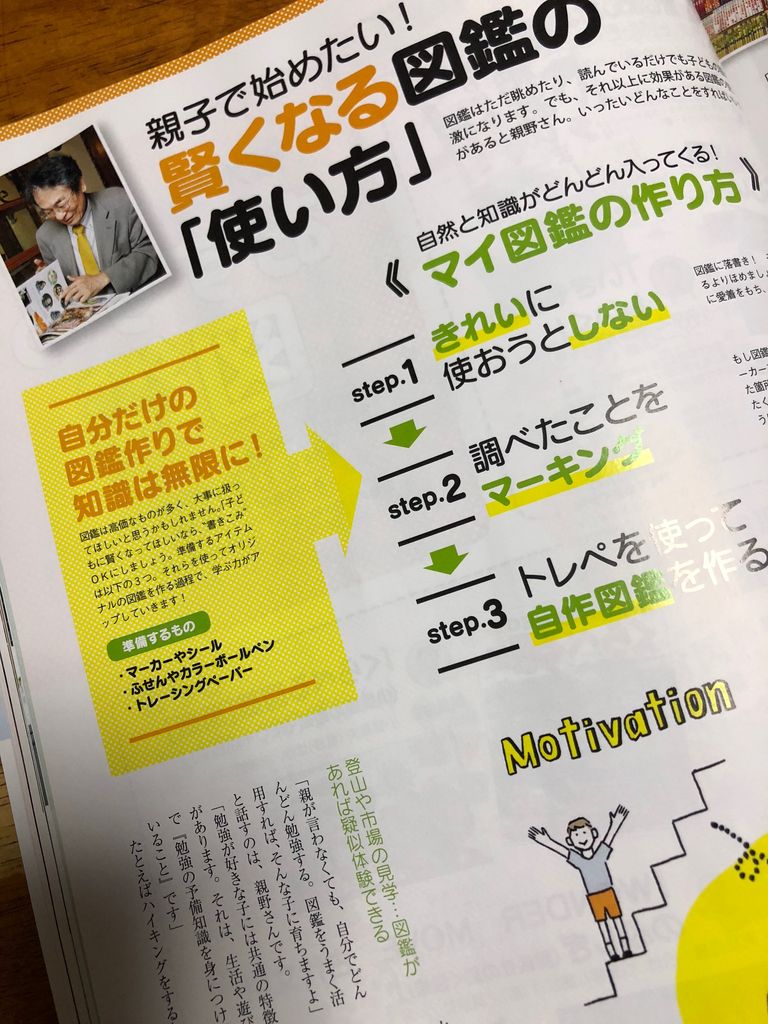 親子で始めたい!
賢くなる図鑑の
「使い方」
図鑑はただ眺めたり、読んでいるだけでも子どもの
激になります。でも、それ以上に効果がある図鑑の
があると親野さん。いったいどんなことをすれば
自然と知識がどんどん入ってくる!
《マイ図鑑の作り方》
step.1
きれいに
使おうとしない
図鑑に落書き!
るよりほめましょ
に愛着をもち、
step.2
調べたことを
マーキング
もし図鑑
ーカー
た箇所
たく
step.3
トレペを使って
自作図鑑を作る
自分だけの
図鑑作りで
知識は無限に!
図鑑は高価なものが多く、大事に扱っ
てほしいと思うかもしれません。「子ど
もに賢くなってほしいなら、“書きこみ”
OKにしましょう。準備するアイテム
は以下の3つ。それらを使ってオリジ
ナルの図鑑を作る過程で、学ぶ力がア
ップしていきます!
準備するもの
・マーカーやシール
・ふせんやカラーボールペン
・トレーシングペーパー
Motivation
登山や市場の見学…図鑑が
あれば疑似体験できる
「親が言わなくても、自分でどん
どん勉強する。図鑑をうまく活
用すれば、そんな子に育ちますよ」
と話すのは、親野さんです。
「勉強が好きな子には共通の特徴
があります。それは、生活や遊び
で『勉強の予備知識を身につけ
いること』です」
たとえばハイキングをする